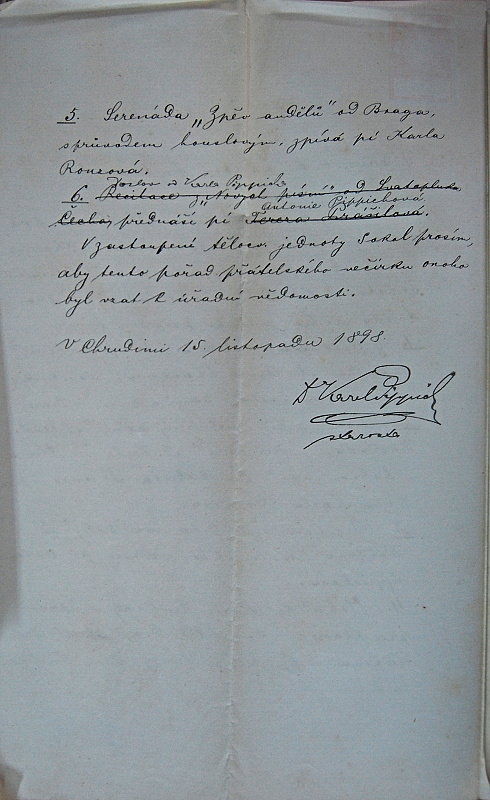 5. Serenáda „Zpěv andělů" od Braga,
sprůvodem houslovým, zpívá pí Karla
Ronzová.
Proslov od Karla Pippicha
6. Recitace z „Nových písní" od Svatopluka
Antonie Pippichová.
Čecha, přednáší pí Tereza Prášilová.
V zastoupení tělocv. jednoty Sokol prosím,
aby tento pořad přátelského večírku onoho
byl vzat k úřadní vědomosti.
V Chrudimi 15. listopadu 1898.
Dr Karel Pippich
starosta